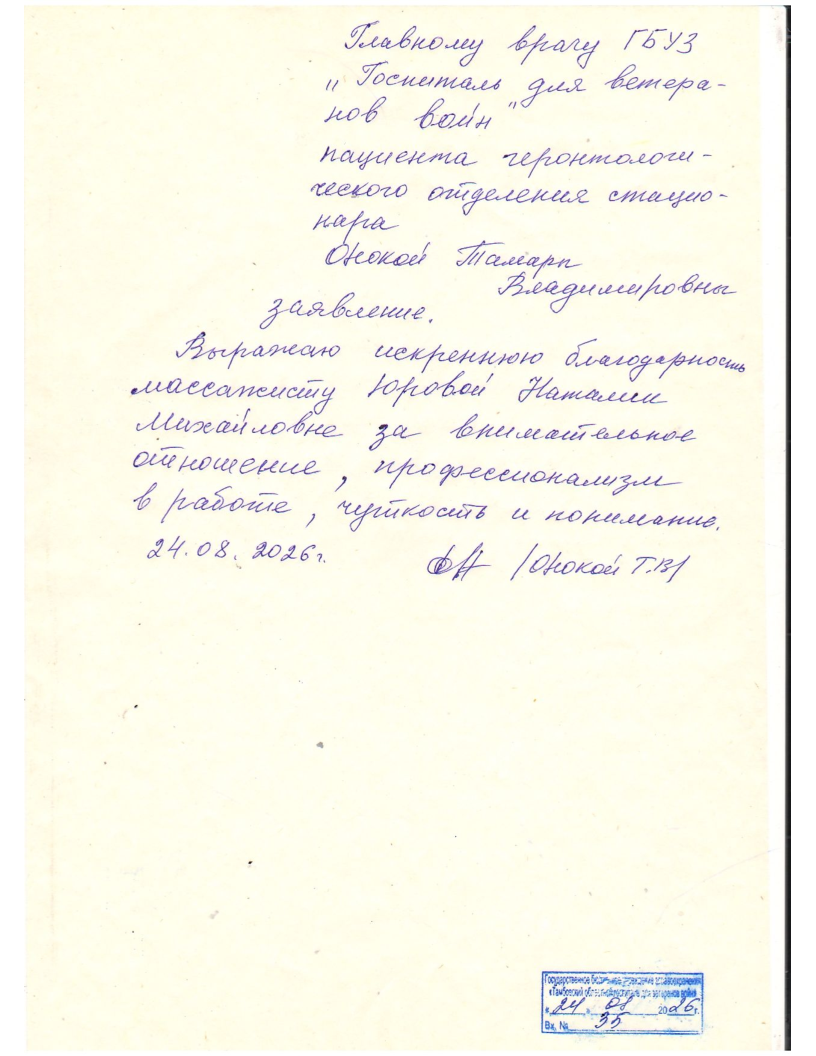 Главному врачу ГБУЗ
„Госпиталь для ветера-
нов войн"
пациента геронтологи-
ческого отделения стацио-
нара
Тамары
Владимировны
заявление.
Выражаю искреннюю благодарность
массажисту Юровой Наталии
Михайловне за внимательное
отношение, профессионализм
в работе, чуткость и понимание.
24.08.2026г.
Т.В/
Государственное бюджетное учреждение здравоохранения
«Тамбовский областной госпиталь для ветеранов войн»
« 24 » 2026г.
Вх. № 35